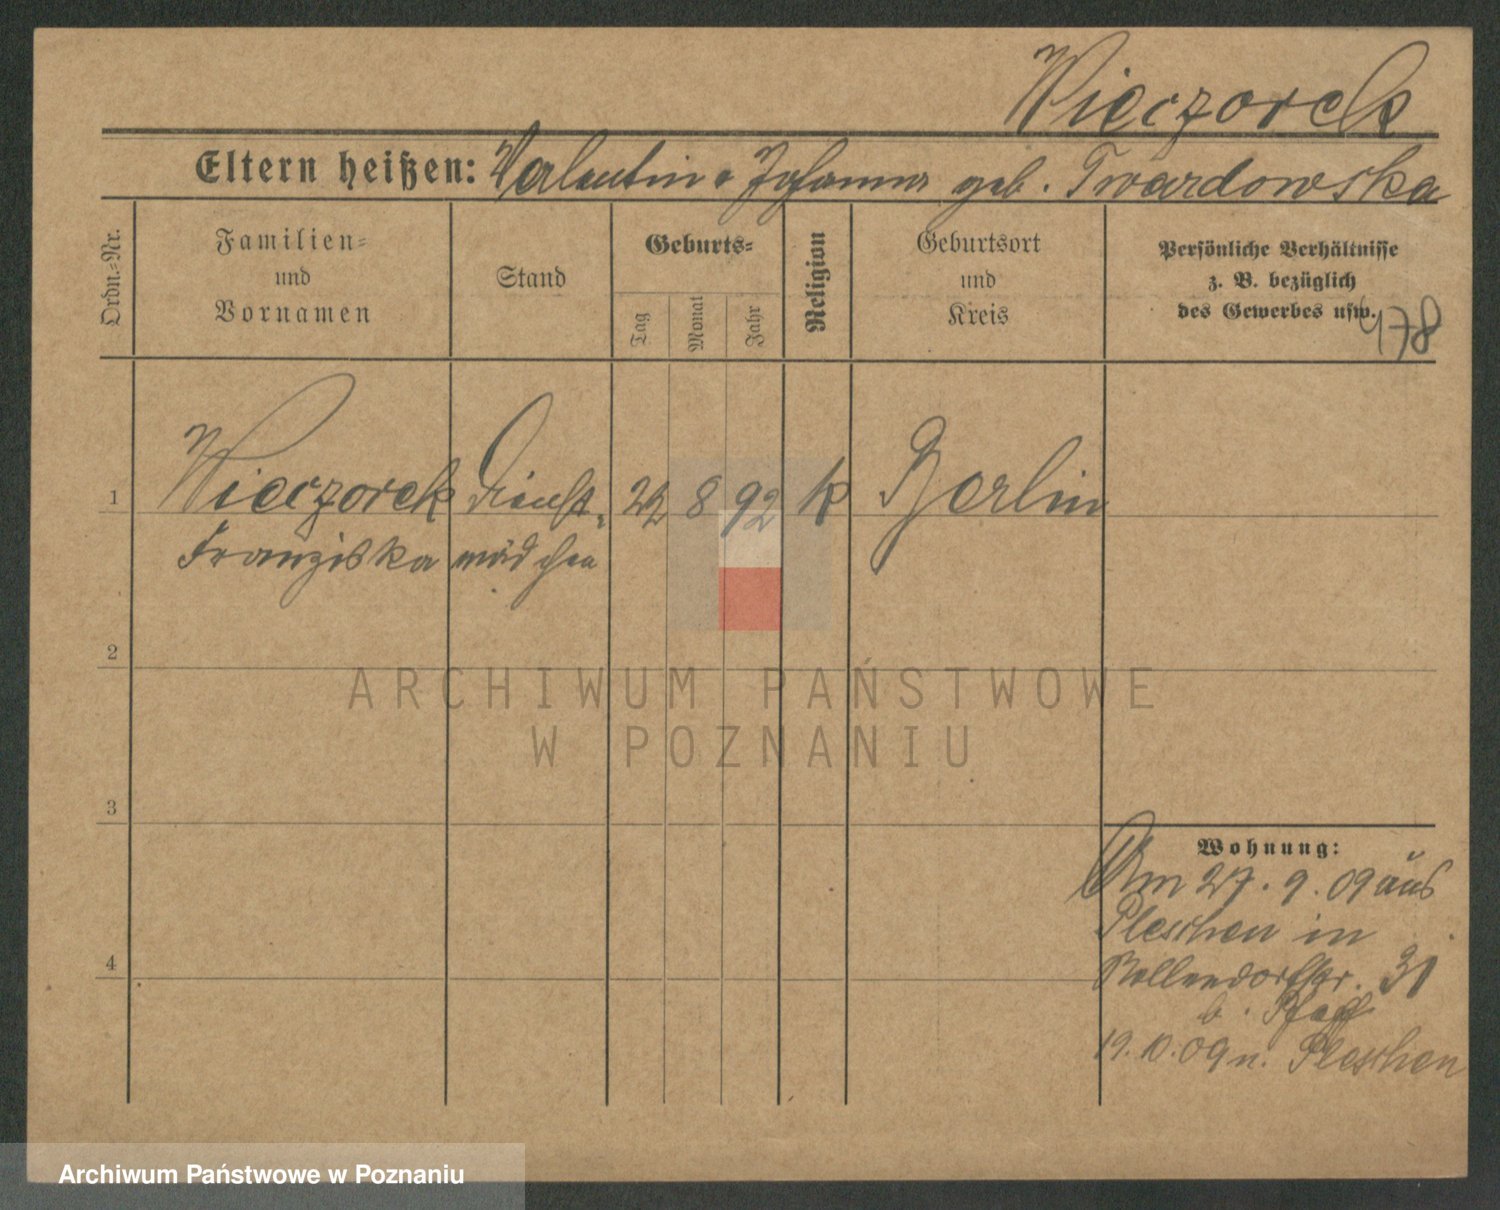 Wieczorek
Eltern heißen: Valentin u Johanna geb. Twardowska
Ordn.-Nr.
Familien-
und
Vornamen
Stand
Geburts-
Tag
Monat
Jahr
Religion
Geburtsort
und
Kreis
Persönliche Verhältnisse
z. B. bezüglich
des Gewerbes usw.
478
1 Wieczorek Dienst- 22 8 92 k Berlin
Franziska mädchen
2
3
4
Wohnung:
Am 27. 9. 09 aus
Pleschen in
Bollendorfstr. 31
b. Pfaff
19. 10. 09 n. Pleschen
ARCHIWUM PAŃSTWOWE
W POZNANIU
Archiwum Państwowe w Poznaniu